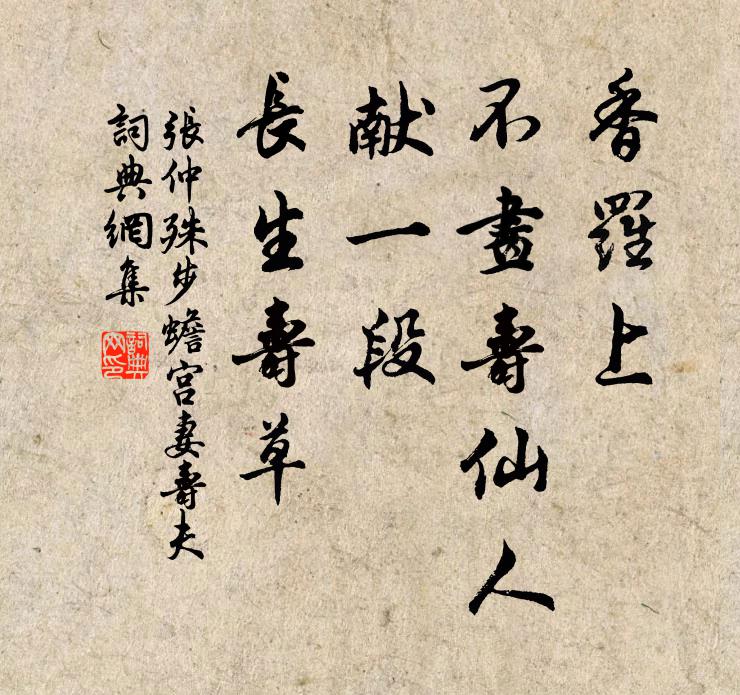 香羅上
不畫壽仙人
献一段
長生壽草
張仲殊步蟾宮妻壽夫
詞典網集
詞典网印